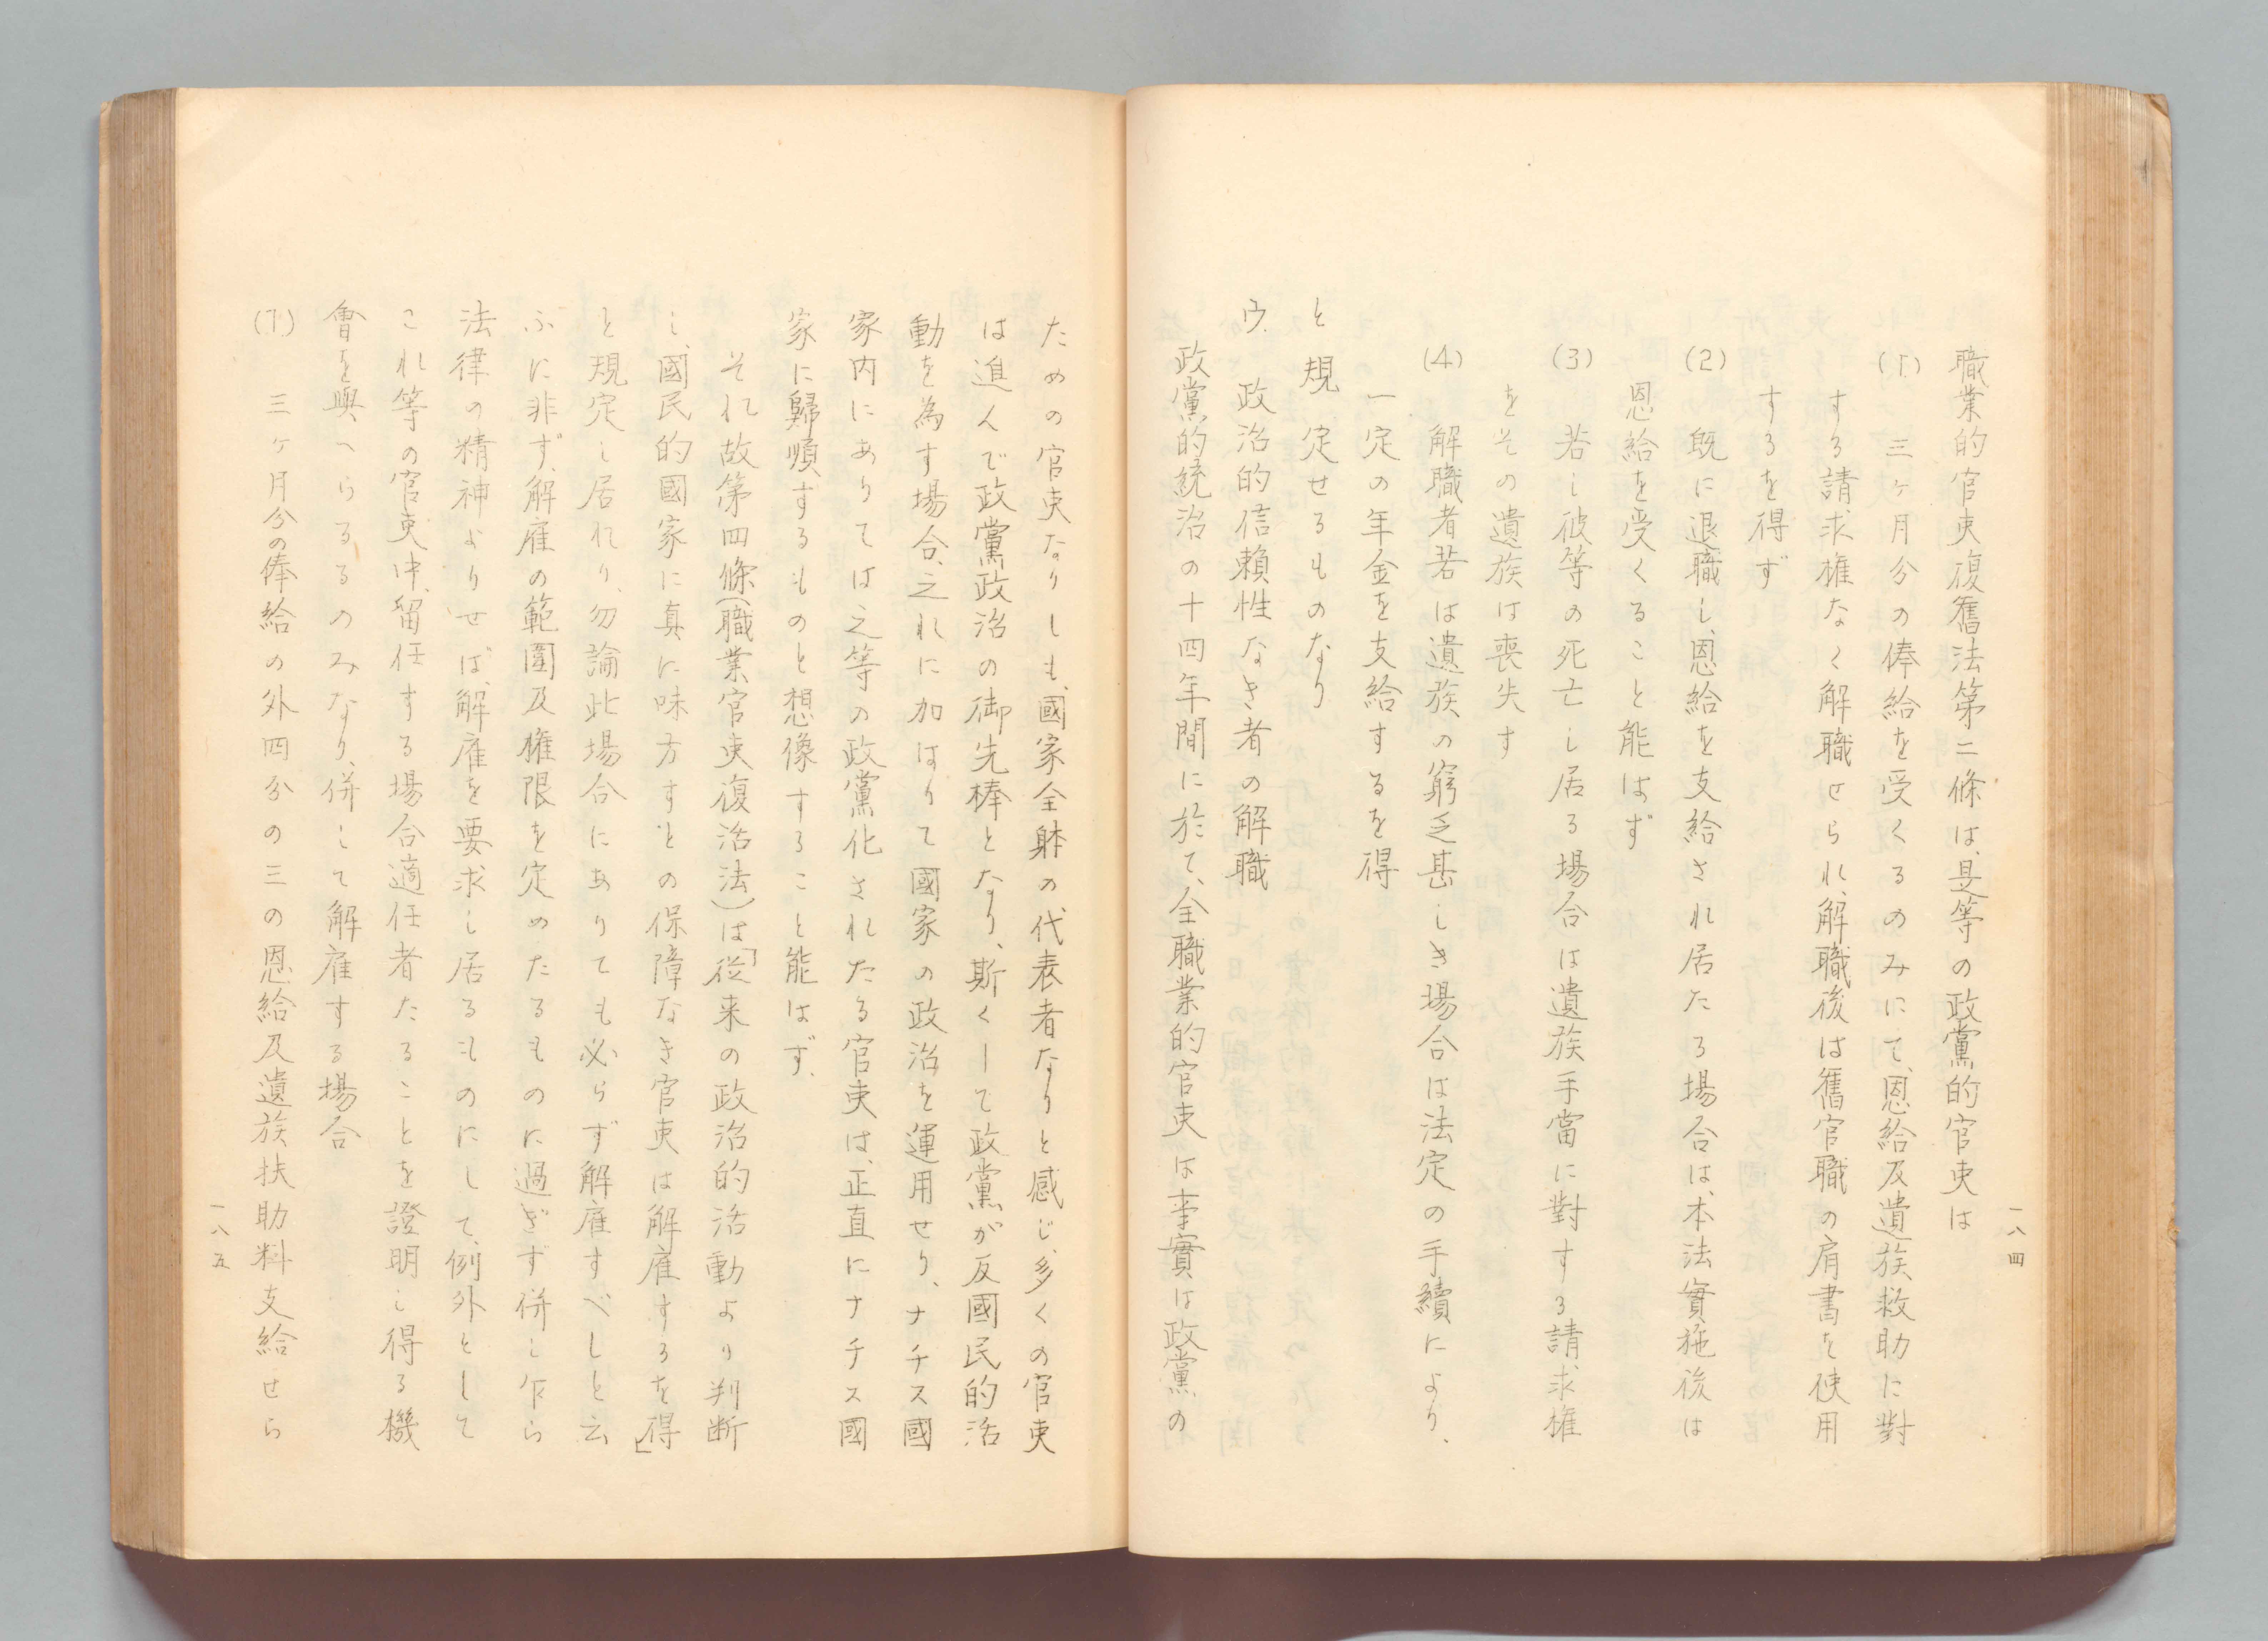 職業的官吏復舊法第二條は、是等の政黨的官吏は
(1) 三ヶ月分の俸給を受くるのみにて、恩給及遺族救助に對
する請求権なく解職せられ、解職後は舊官職の肩書を使用
するを得ず
(2) 既に退職し、恩給を支給され居たる場合は、本法實施後は
恩給を受くること能はず
(3) 若し彼等の死亡し居る場合は遺族手當に對する請求権
をその遺族は喪失す
(4) 解職者若は遺族の窮乏甚しき場合は法定の手續により、
一定の年金を支給するを得
と規定せるものなり
ウ. 政治的信賴性なき者の解職
政黨的統治の十四年間に於て、全職業的官吏は事實は政黨の
一八四
ための官吏なりしも、國家全躰の代表者なりと感じ、多くの官吏
は進んで政黨政治の御先棒となり、斯くして政黨が反國民的活
動を為す場合、之れに加はりて國家の政治を運用せり、ナチス國
家内にありては之等の政黨化されたる官吏は、正直にナチス國
家に歸順するものと想像すること能はず.
それ故第四條(職業官吏復活法)は「従来の政治的活動より判断
し、國民的國家に真に味方すとの保障なき官吏は解雇するを得」
と規定し居れり、勿論此場合にありても必らず解雇すべしと云
ふに非ず、解雇の範圍及権限を定めたるものに過ぎず併し乍ら
法律の精神よりせば、解雇を要求し居るものにして、例外として
これ等の官吏中、留任する場合適任者たることを證明し得る機
會を與へらるるのみなり、併して解雇する場合
(1) 三ヶ月分の俸給の外四分の三の恩給及遺族扶助料支給せら
一八五